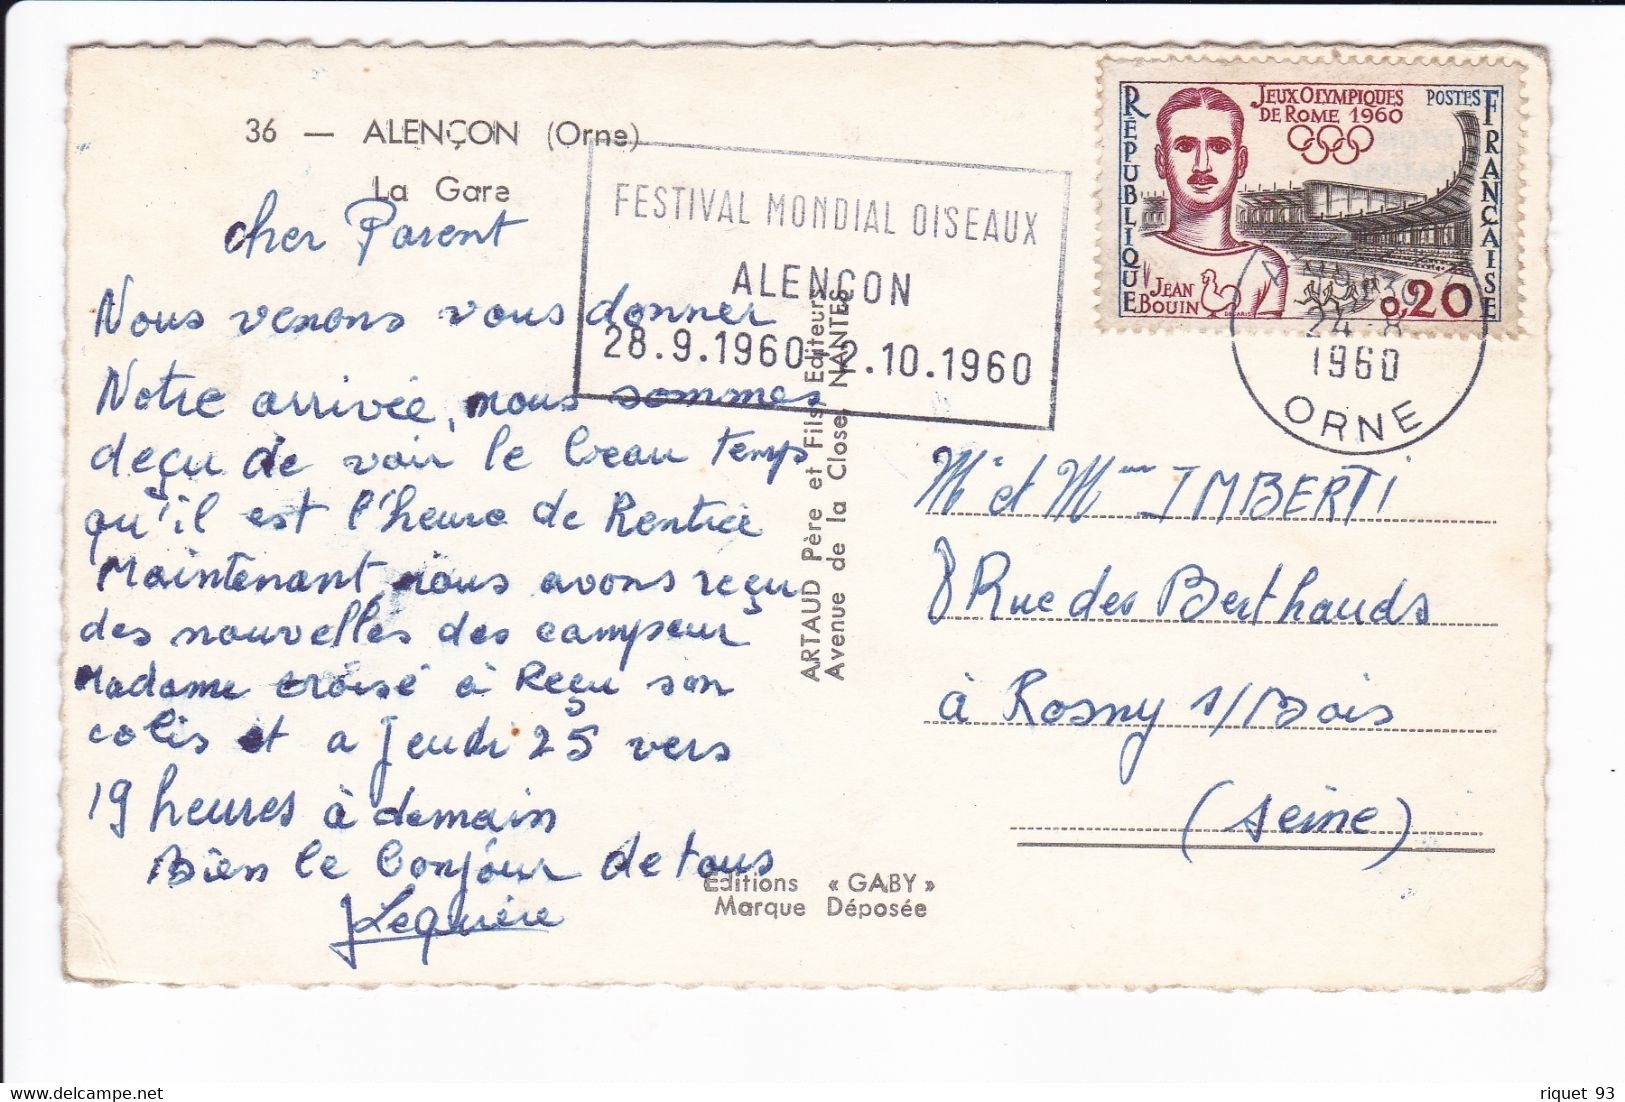 36 — ALENÇON (Orne)
La Gare
cher Parent
Nous venons vous donner
Notre arrivée, nous sommes
deçu de voir le beau temps
qu'il est l'heure de Rentrée
Maintenant, nous avons reçu
des nouvelles des campeur
Madame croisé à Reçu son
colis et a Jeudi 25 vers
19 heures à demain
Bien le bonjour de tous
Lequière
FESTIVAL MONDIAL OISEAUX
ALENÇON
28.9.1960-2.10.1960
ARTAUD Père et Fils, Editeurs
Avenue de la Close, NANTES
Editions « GABY »
Marque Déposée
RÉPUBLIQUE
JEUX OLYMPIQUES
DE ROME 1960
POSTES
FRANÇAISE
JEAN
BOUIN
DECARIS
0,20
24-8
1960
ORNE
Mr et Mme IMBERTI
8 Rue des Berthauds
à Rosny s/Bois
(seine)
riquet 93